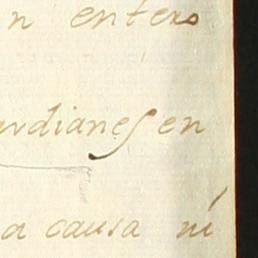 n entero
ardianes en
a causa ni